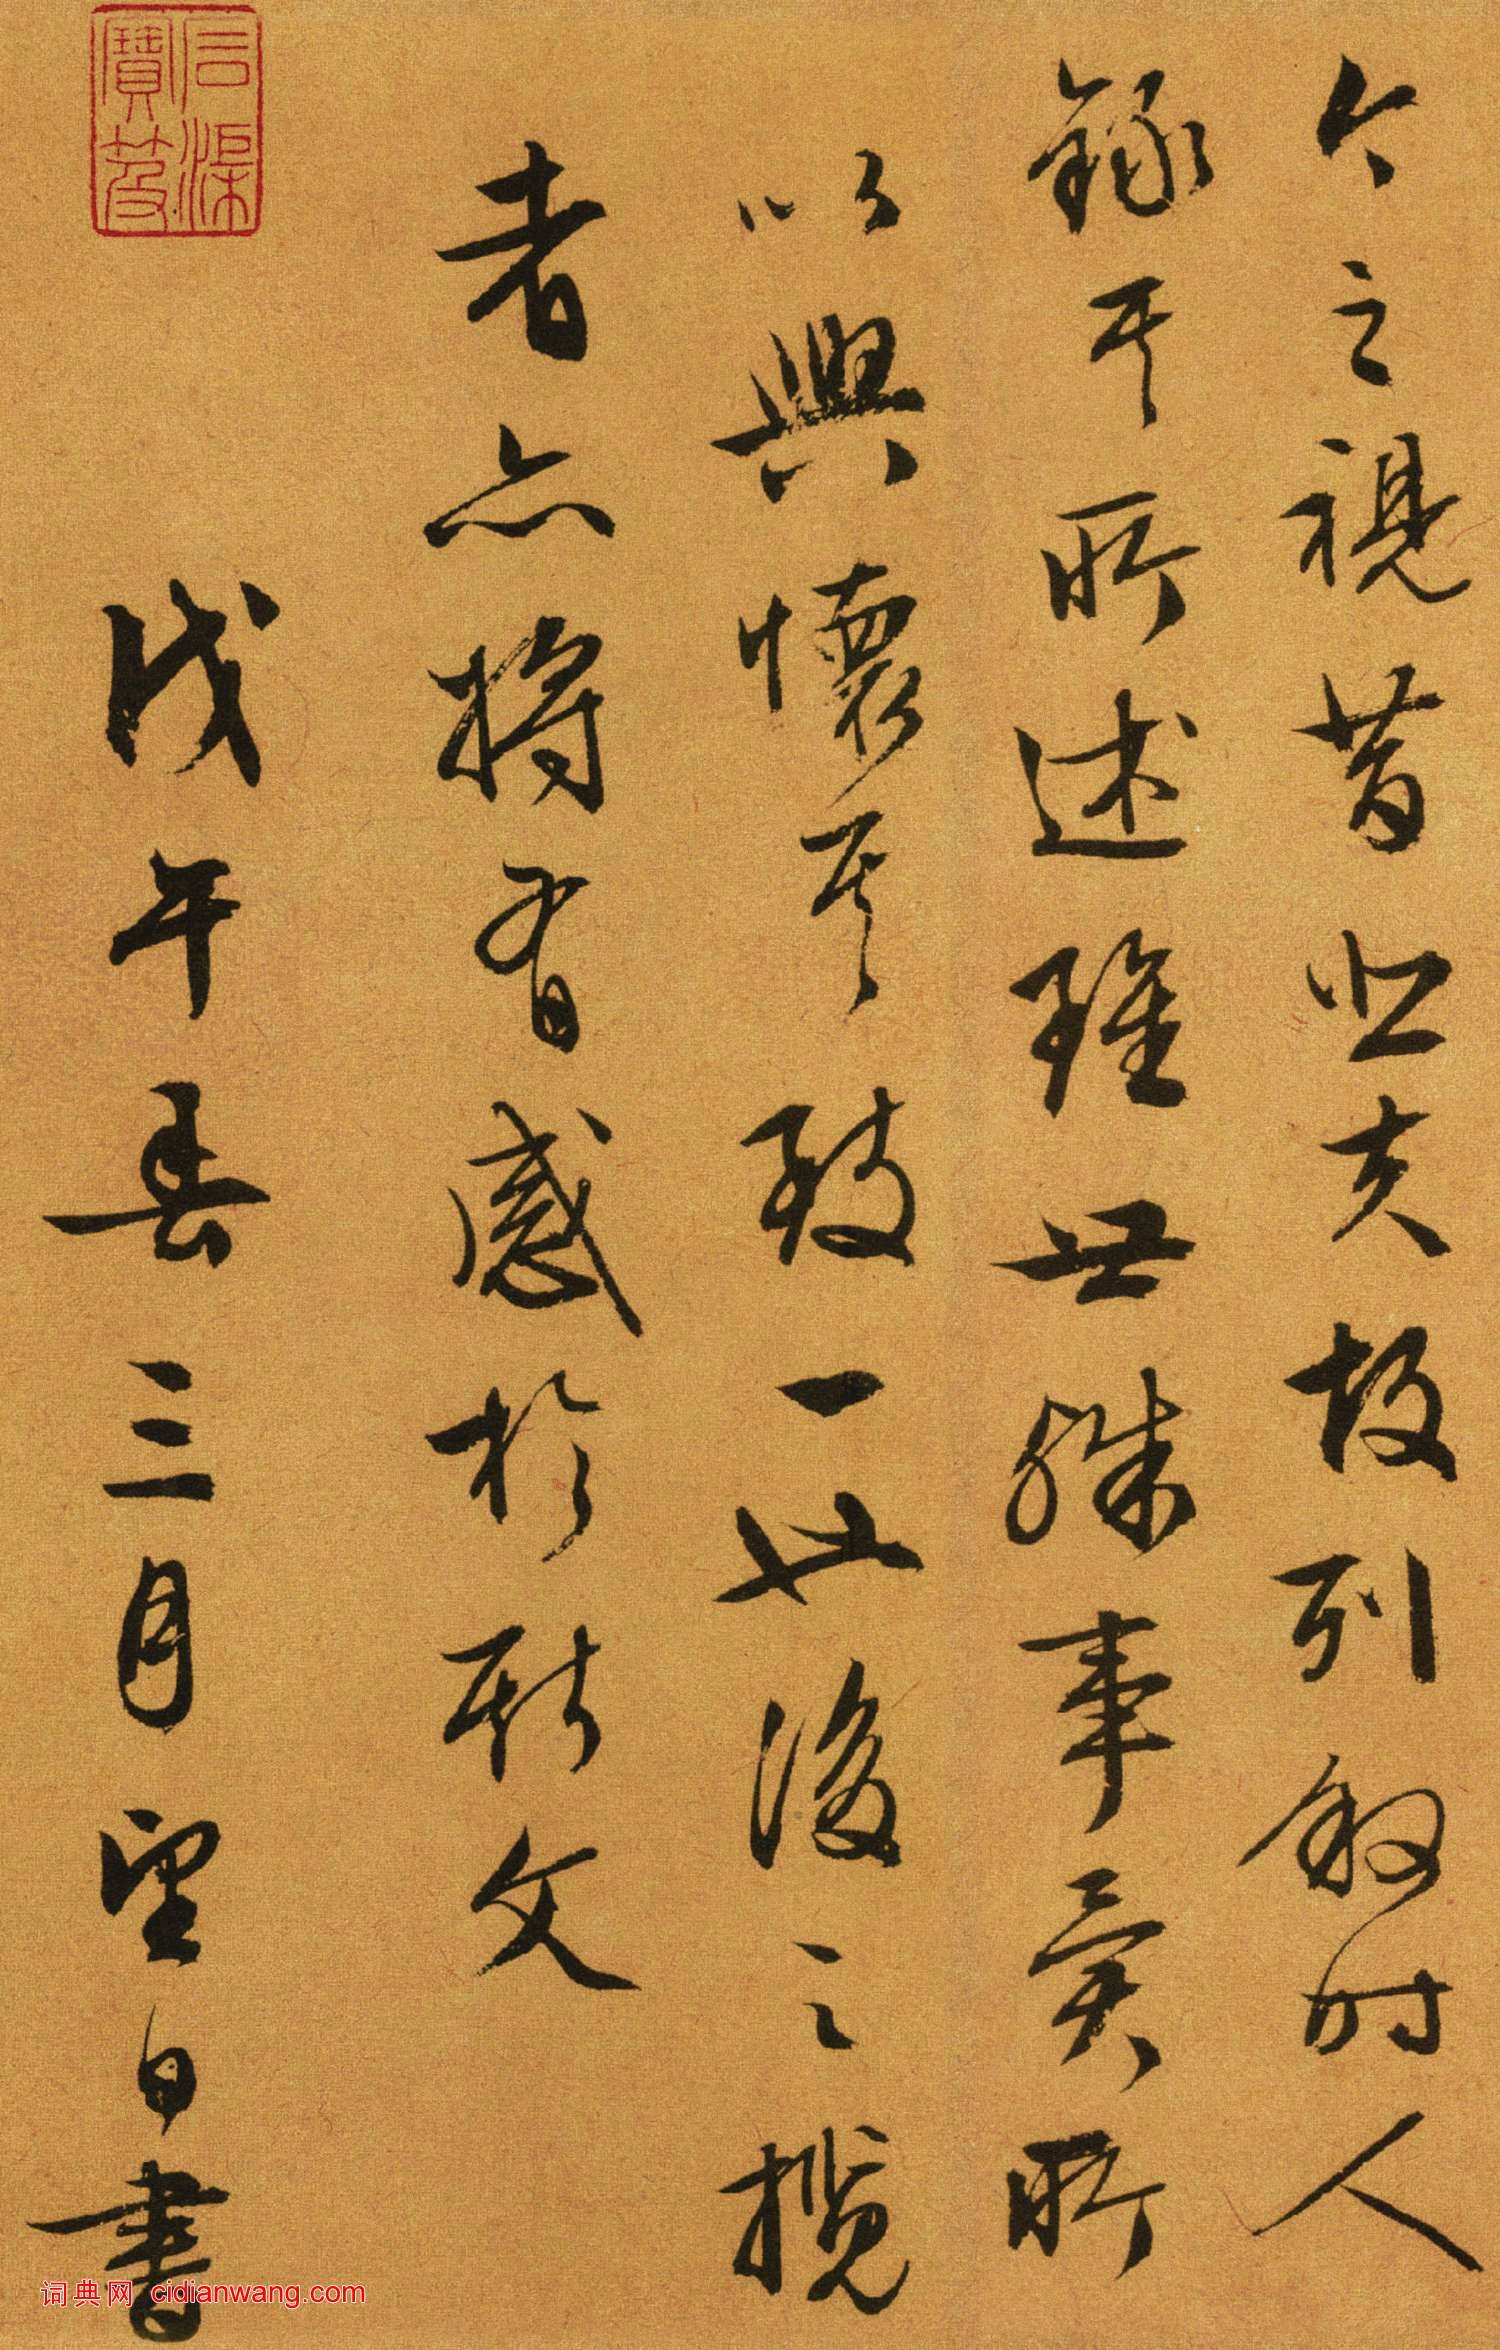 今之視昔悲夫故列叙时人
録其所述雖世殊事異所
以興懷其致一也後之攬
者亦将有感於斯文
戊午春三月望日書
石渠寶笈
词典网 cidianwang.com